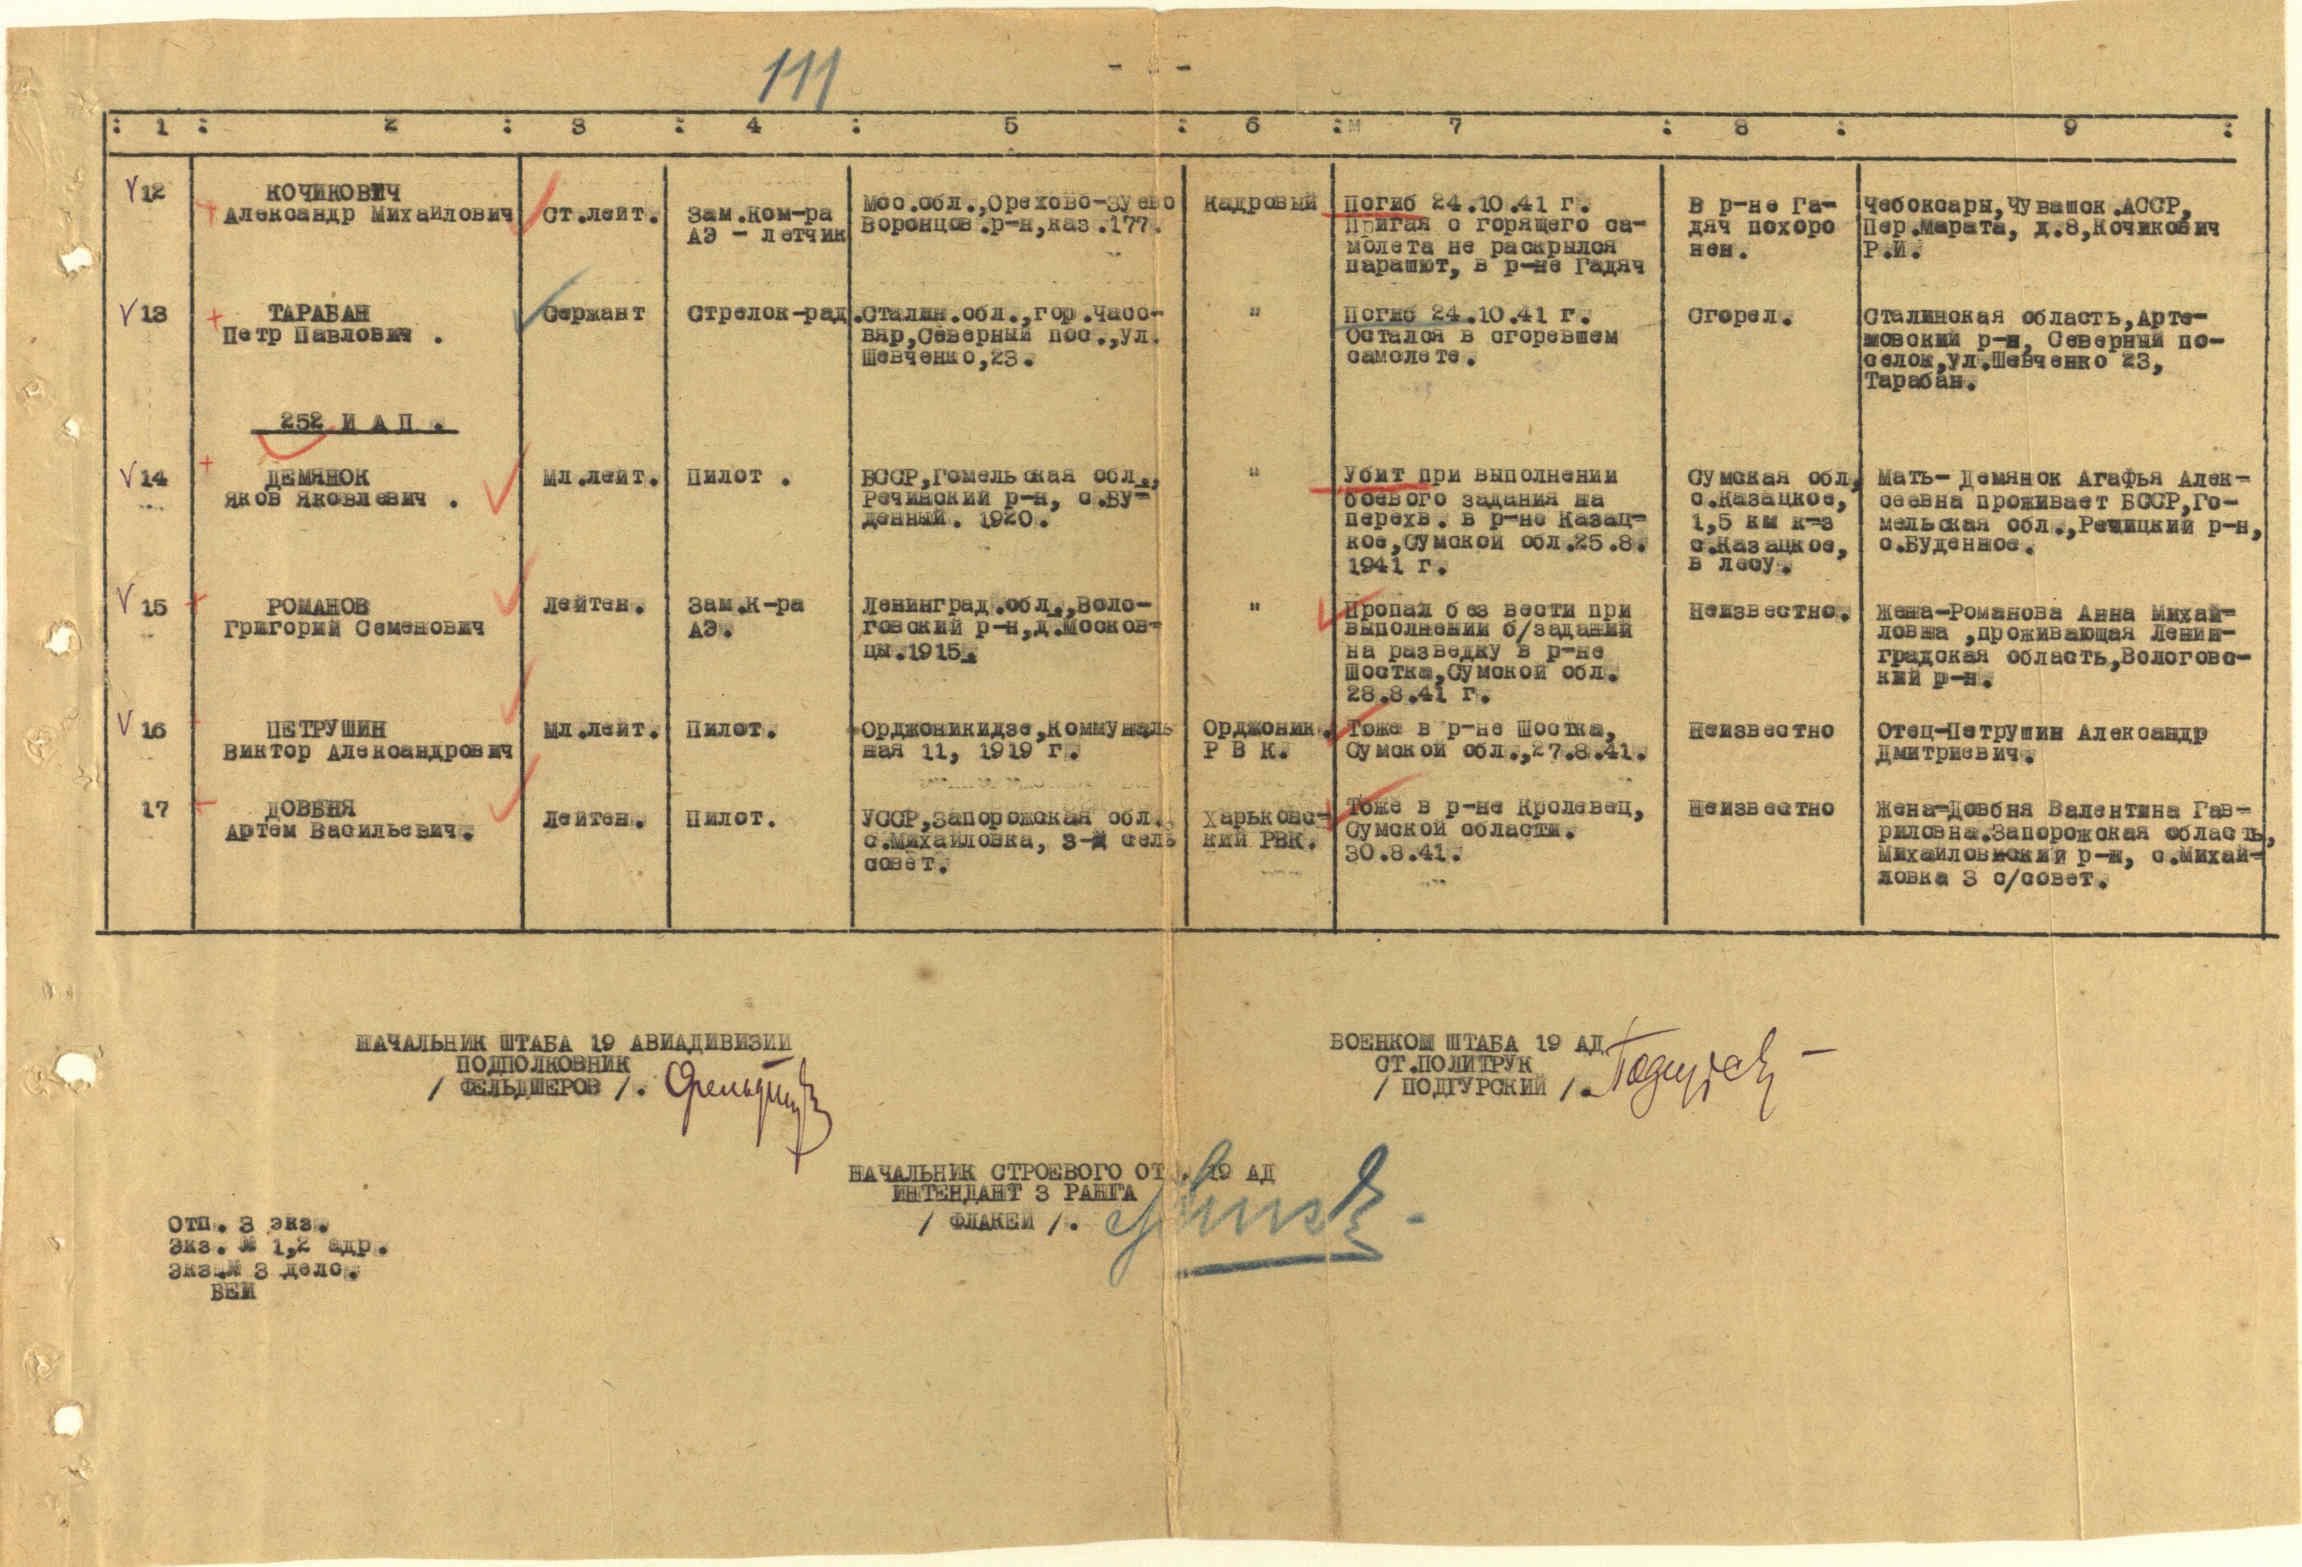 111
: 1 : 2 : 3 : 4 : 5 : 6 : 7 : 8 : 9 :
12
КОЧИКОВИЧ
Александр Михайлович
Ст.лейт.
Зам.Ком-ра
АЭ - летчик
Мос.обл.,Орехово-Зуево
Воронцов.р-н,каз.177.
Кадровый
Погиб 24.10.41 г.
Пригая с горящего са-
молета не раскрылся
парашют, в р-не Гадяч
В р-не Га-
дяч похоро
нен.
Чебоксары,Чувашск.АССР,
Пер.Марата, д.8,Кочикович
Р.И.
13
ТАРАБАН
Петр Павлович .
Сержант
Стрелок-рад.
Сталин.обл.,гор.Часс-
вяр,Северный пос.,ул.
Шевченко,23.
"
Погиб 24.10.41 г.
Остался в сгоревшем
самолете.
Сгорел.
Сталинская область,Арте-
мовский р-н, Северный по-
селок,ул.Шевченко 23,
Тарабан.
252 И А П .
14
ДЕМЯНОК
Яков Яковлевич .
Мл.лейт.
Пилот .
БССР,Гомельская обл.,
Речинский р-н, с.Бу-
денный. 1920.
"
Убит при выполнении
боевого задания на
перехв. в р-не Казац-
кое,Сумской обл.25.8.
1941 г.
Сумская обл,
с.Казацкое,
1,5 км к-з
с.Казацкое,
в лесу.
Мать- Демянок Агафья Алек-
сеевна проживает БССР,Го-
мельская обл.,Речицкий р-н,
с.Буденное.
15
РОМАНОВ
Григорий Семенович
Лейтен.
Зам.К-ра
АЭ.
Ленинград.обл.,Воло-
говский р-н,д.Москов-
цы.1915.
"
Пропал без вести при
выполнении б/заданий
на разведку в р-не
Шостка,Сумской обл.
28.8.41 г.
Неизвестно.
Жена-Романова Анна Михай-
ловна ,проживающая Ленин-
градская область,Вологовс-
кий р-н.
16
ПЕТРУШИН
Виктор Александрович
Мл.лейт.
Пилот.
Орджоникидзе,Коммуналь
ная 11, 1919 г.
Орджоник.
Р В К.
Тоже в р-не Шостка,
Сумской обл.,27.8.41.
Неизвестно
Отец-Петрушин Александр
Дмитриевич.
17
ДОВБНЯ
Артем Васильевич.
Лейтен.
Пилот.
УССР,Запорожская обл.
с.Михайловка, 3-й сель
совет.
Харьковс-
кий РВК.
Тоже в р-не Кролевец,
Сумской области.
30.8.41.
Неизвестно
Жена-Довбня Валентина Гав-
риловна.Запорожская область,
Михайловнский р-н, с.Михай-
ловка 3 с/совет.
НАЧАЛЬНИК ШТАБА 19 АВИАДИВИЗИИ
ПОДПОЛКОВНИК
/ ФЕЛЬДШЕРОВ /.
ВОЕНКОМ ШТАБА 19 АД
СТ.ПОЛИТРУК
/ ПОДГУРСКИЙ /.
НАЧАЛЬНИК СТРОЕВОГО ОТ . 19 АД
ИНТЕНДАНТ 3 РАНГА
/ ФЛАКЕЙ /.
Отп. 3 экз.
Экз. № 1,2 адр.
Экз.№ 3 дело.
ВЕИ